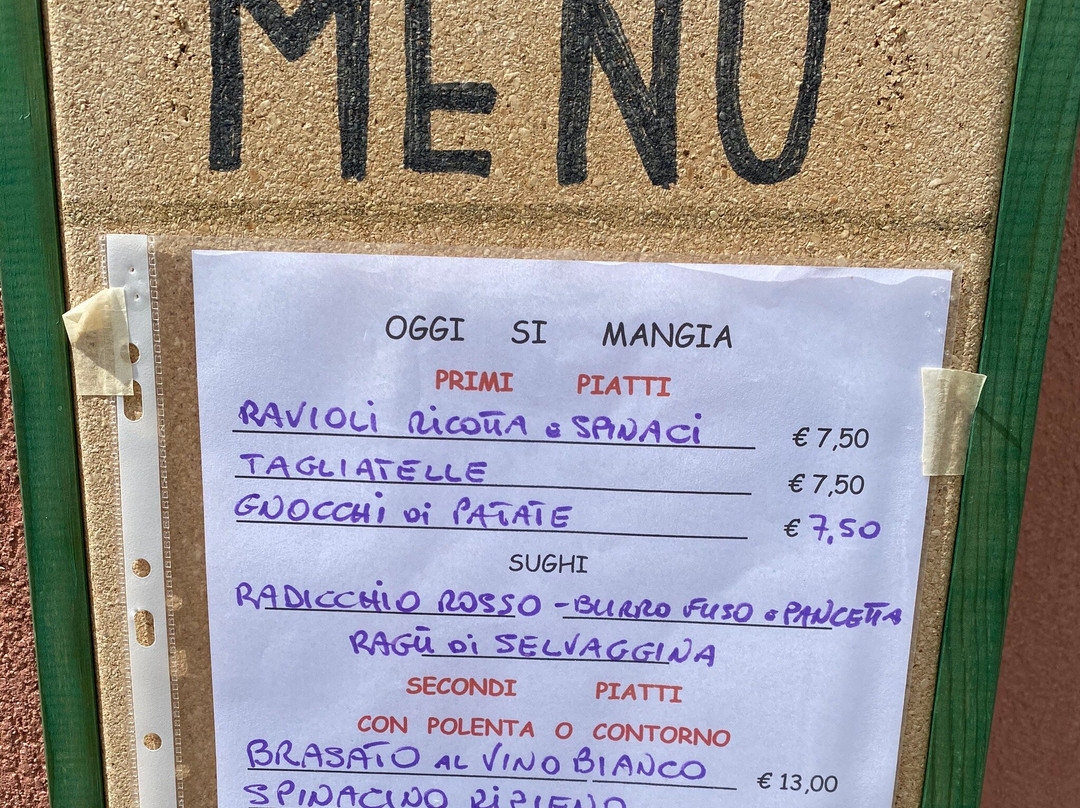 MENU
OGGI SI MANGIA
PRIMI PIATTI
RAVIOLI RICOTTA e SPINACI € 7,50
TAGLIATELLE € 7,50
GNOCCHI di PATATE € 7,50
SUGHI
RADICCHIO ROSSO - BURRO FUSO e PANCETTA
RAGÙ di SELVAGGINA
SECONDI PIATTI
CON POLENTA O CONTORNO
BRASATO AL VINO BIANCO € 13,00
SPINACINO RIPIENO